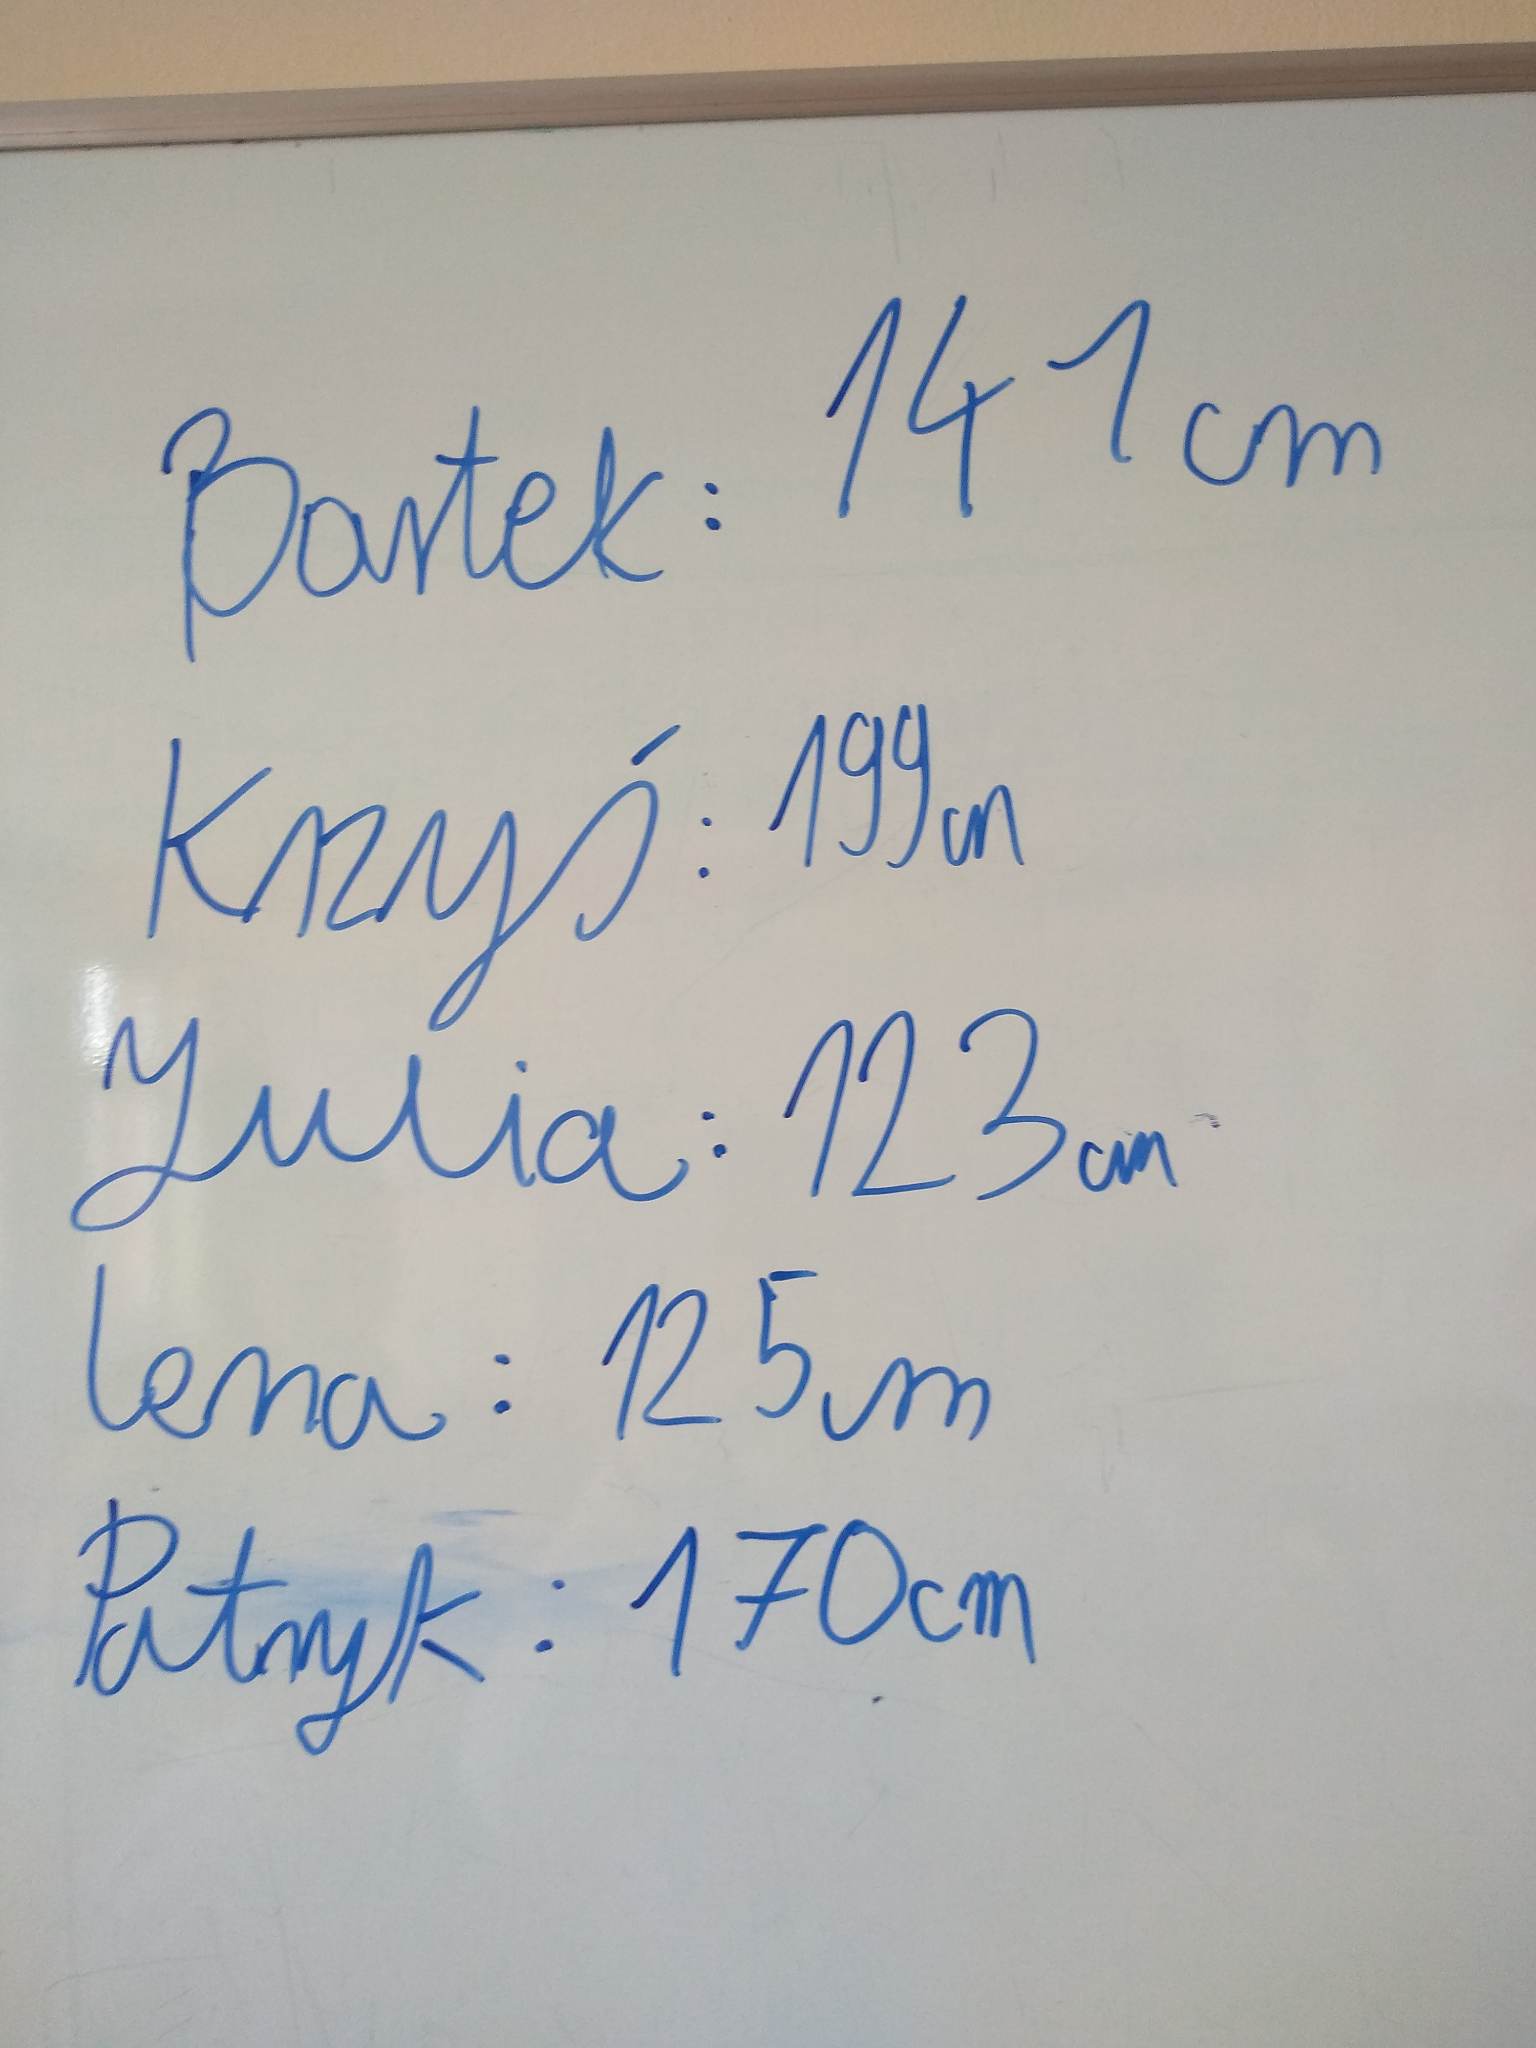 Bartek: 141cm
Krzyś: 199cm
Julia: 123cm
Lena: 125cm
Patryk: 170cm